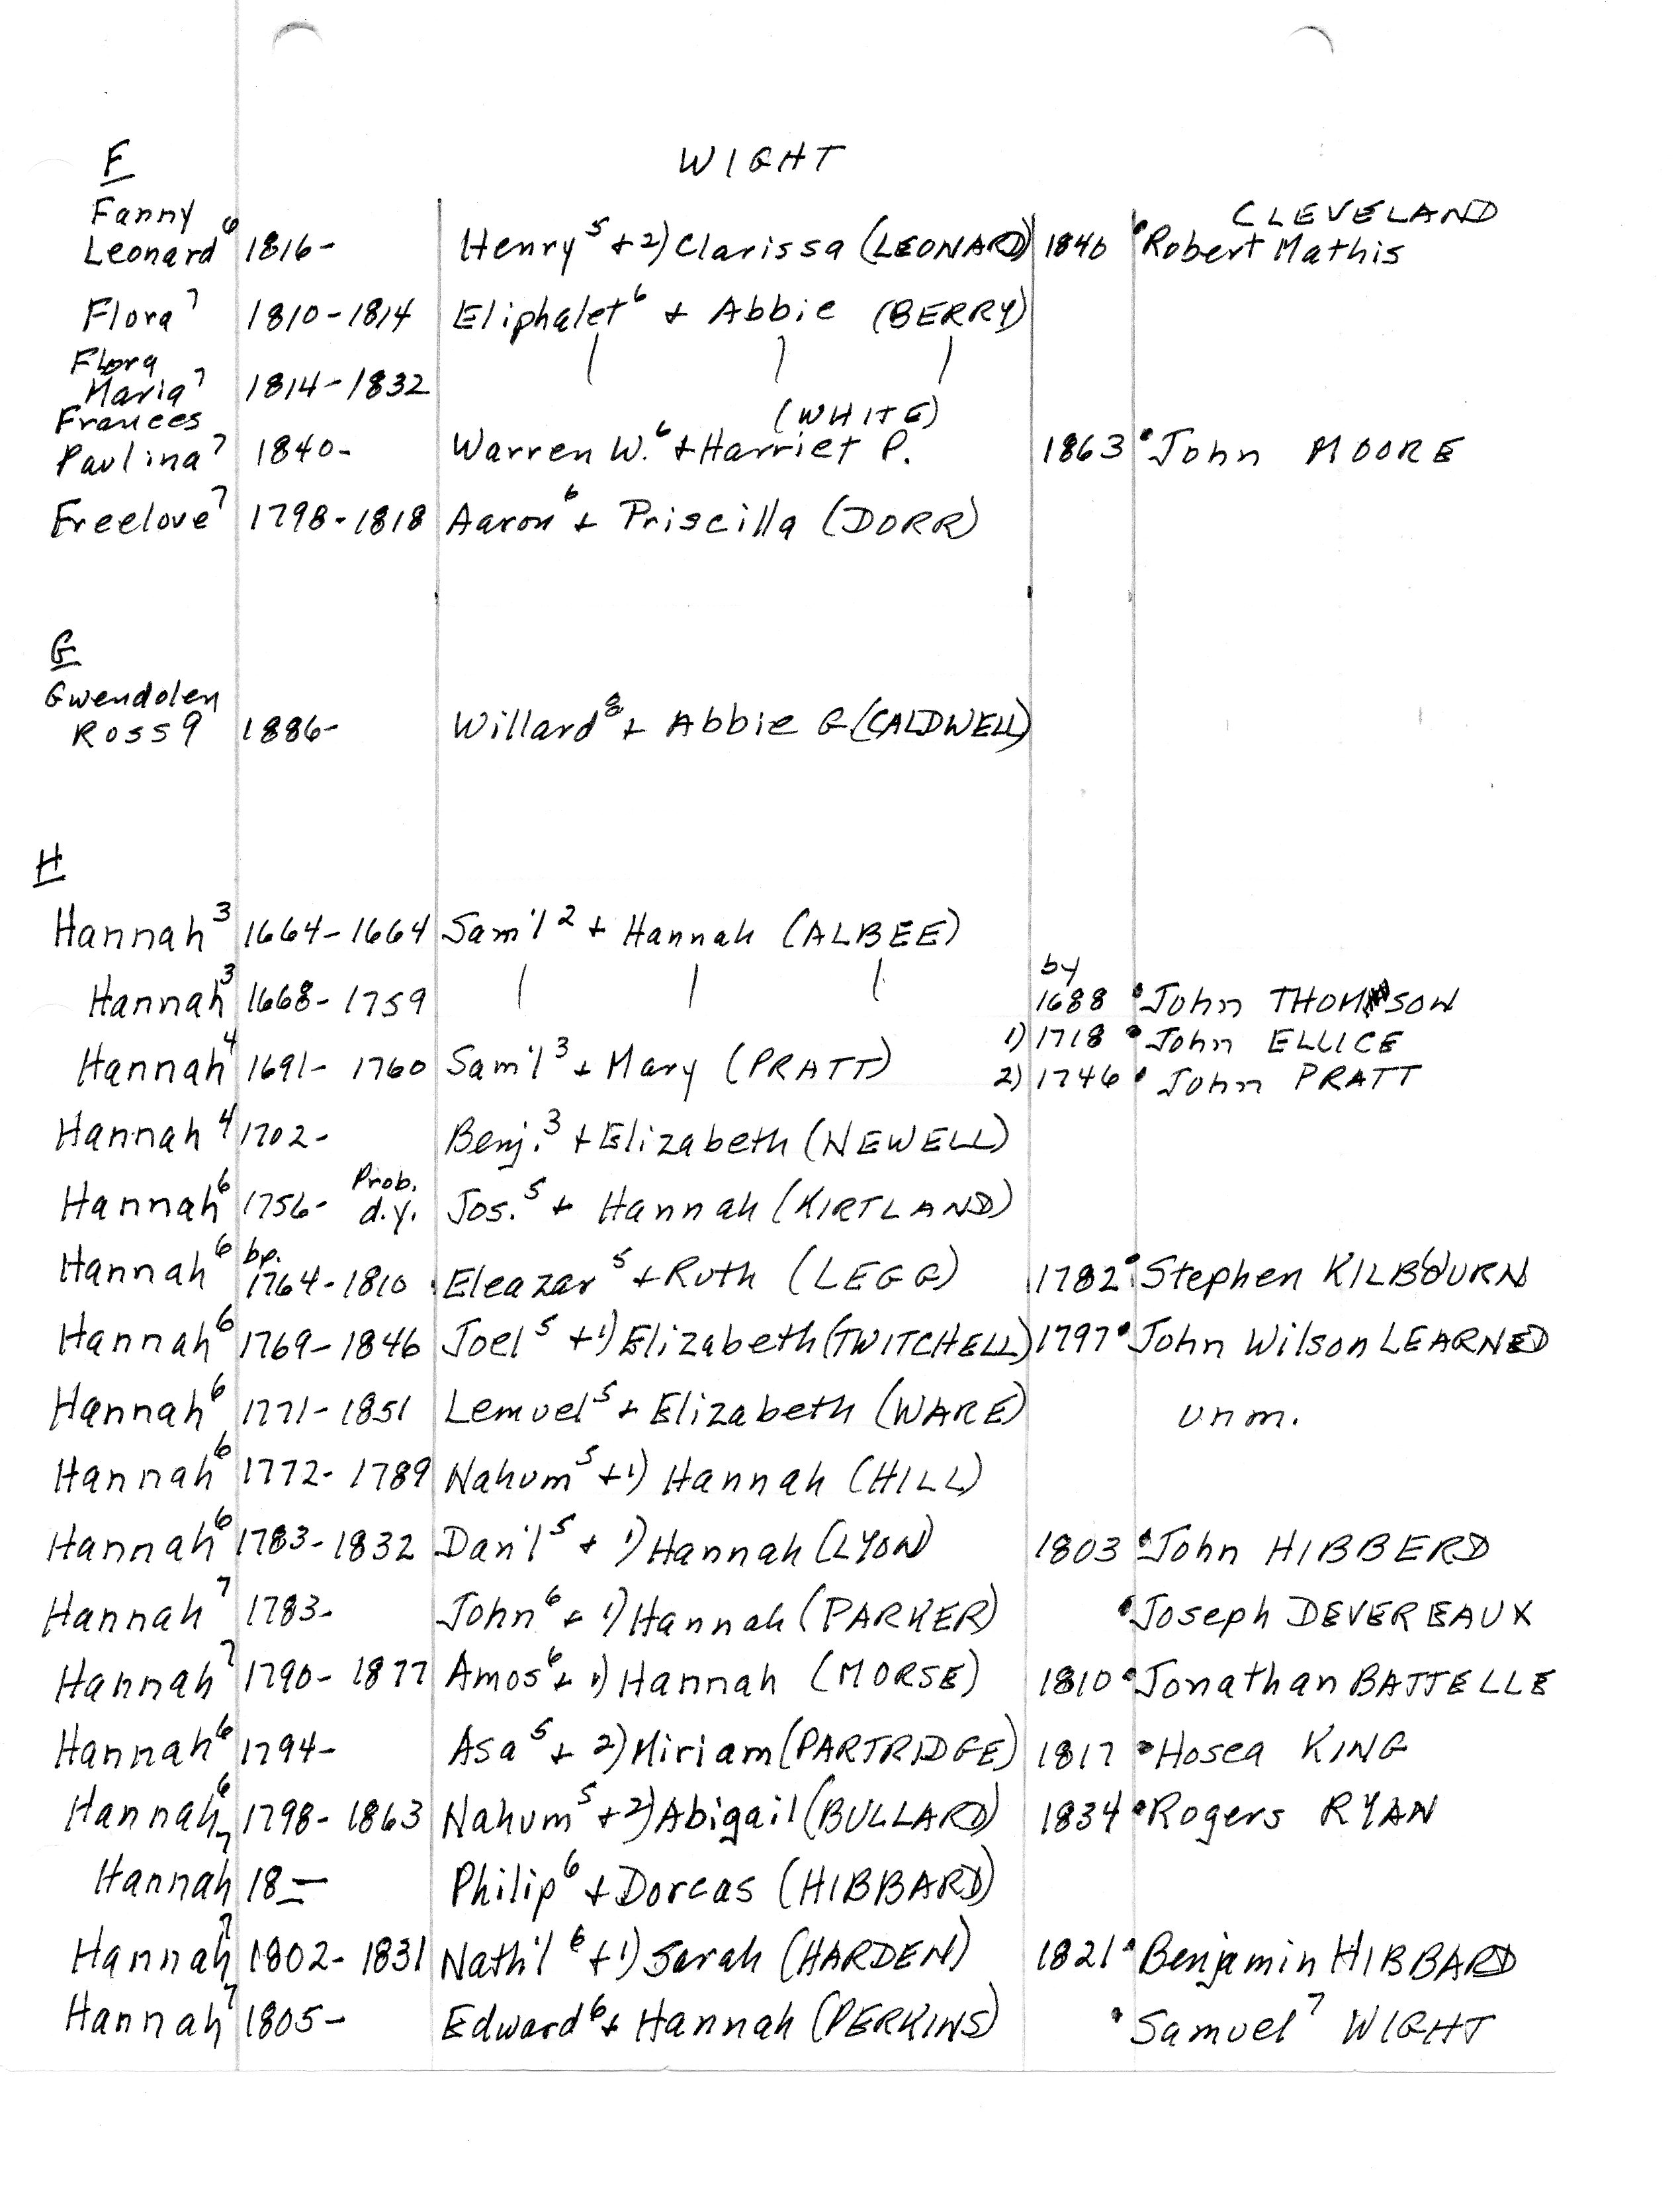 F
WIGHT
Fanny CLEVELAND
Leonard⁶ 1816- Henry⁵ + 2) Clarissa (LEONARD) 1840 •Robert Mathis
Flora⁷ 1810-1814 Eliphalet⁶ + Abbie (BERRY)
Flora | | |
Maria⁷ 1814-1832
Frances (WHITE)
Paulina⁷ 1840- Warren W.⁶ + Harriet P. 1863 •John MOORE
Freelove⁷ 1798-1818 Aaron⁶ + Priscilla (DORR)
G
Gwendolen
Ross9 1886- Willard⁸ + Abbie G (CALDWELL)
H
Hannah³ 1664-1664 Sam'l² + Hannah (ALBEE)
by
Hannah³ 1668-1759 | | | 1688 •John THOMSON
1) 1718 •John ELLICE
Hannah⁴ 1691-1760 Sam'l³ + Mary (PRATT)
2) 1746 •John PRATT
Hannah⁴ 1702- Benj.³ + Elizabeth (NEWELL)
Prob.
Hannah⁶ 1756- d.y. Jos.⁵ + Hannah (KIRTLAND)
bp.
Hannah⁶ 1764-1810 Eleazar⁵ + Ruth (LEGG) 1782 •Stephen KILBOURN
Hannah⁶ 1769-1846 Joel⁵ + 1) Elizabeth (TWITCHELL) 1797 •John Wilson LEARNED
Hannah⁶ 1771-1851 Lemuel⁵ + Elizabeth (WARE) unm.
Hannah⁶ 1772-1789 Nahum⁵ + 1) Hannah (HILL)
Hannah⁶ 1783-1832 Dan'l⁵ + 1) Hannah (LYON) 1803 •John HIBBERD
Hannah⁷ 1783- John⁶ + 1) Hannah (PARKER) •Joseph DEVEREAUX
Hannah⁷ 1790-1877 Amos⁶ + 1) Hannah (MORSE) 1810 •Jonathan BATTELLE
Hannah⁶ 1794- Asa⁵ + 2) Miriam (PARTRIDGE) 1817 •Hosea KING
Hannah⁶ 1798-1863 Nahum⁵ + 2) Abigail (BULLARD) 1834 •Rogers RYAN
Hannah⁷ 18— Philip⁶ + Dorcas (HIBBARD)
Hannah⁷ 1802-1831 Nath'l⁶ + 1) Sarah (HARDEN) 1821 •Benjamin HIBBARD
Hannah⁷ 1805- Edward⁶ + Hannah (PERKINS) •Samuel⁷ WIGHT